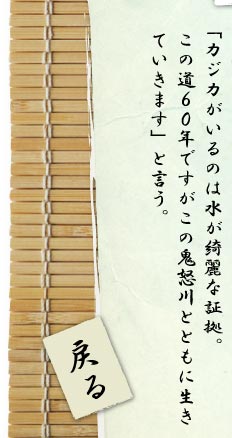 「カジカがいるのは水が綺麗な証拠。
この道60年ですがこの鬼怒川とともに生き
ていきます」と言う。
戻る